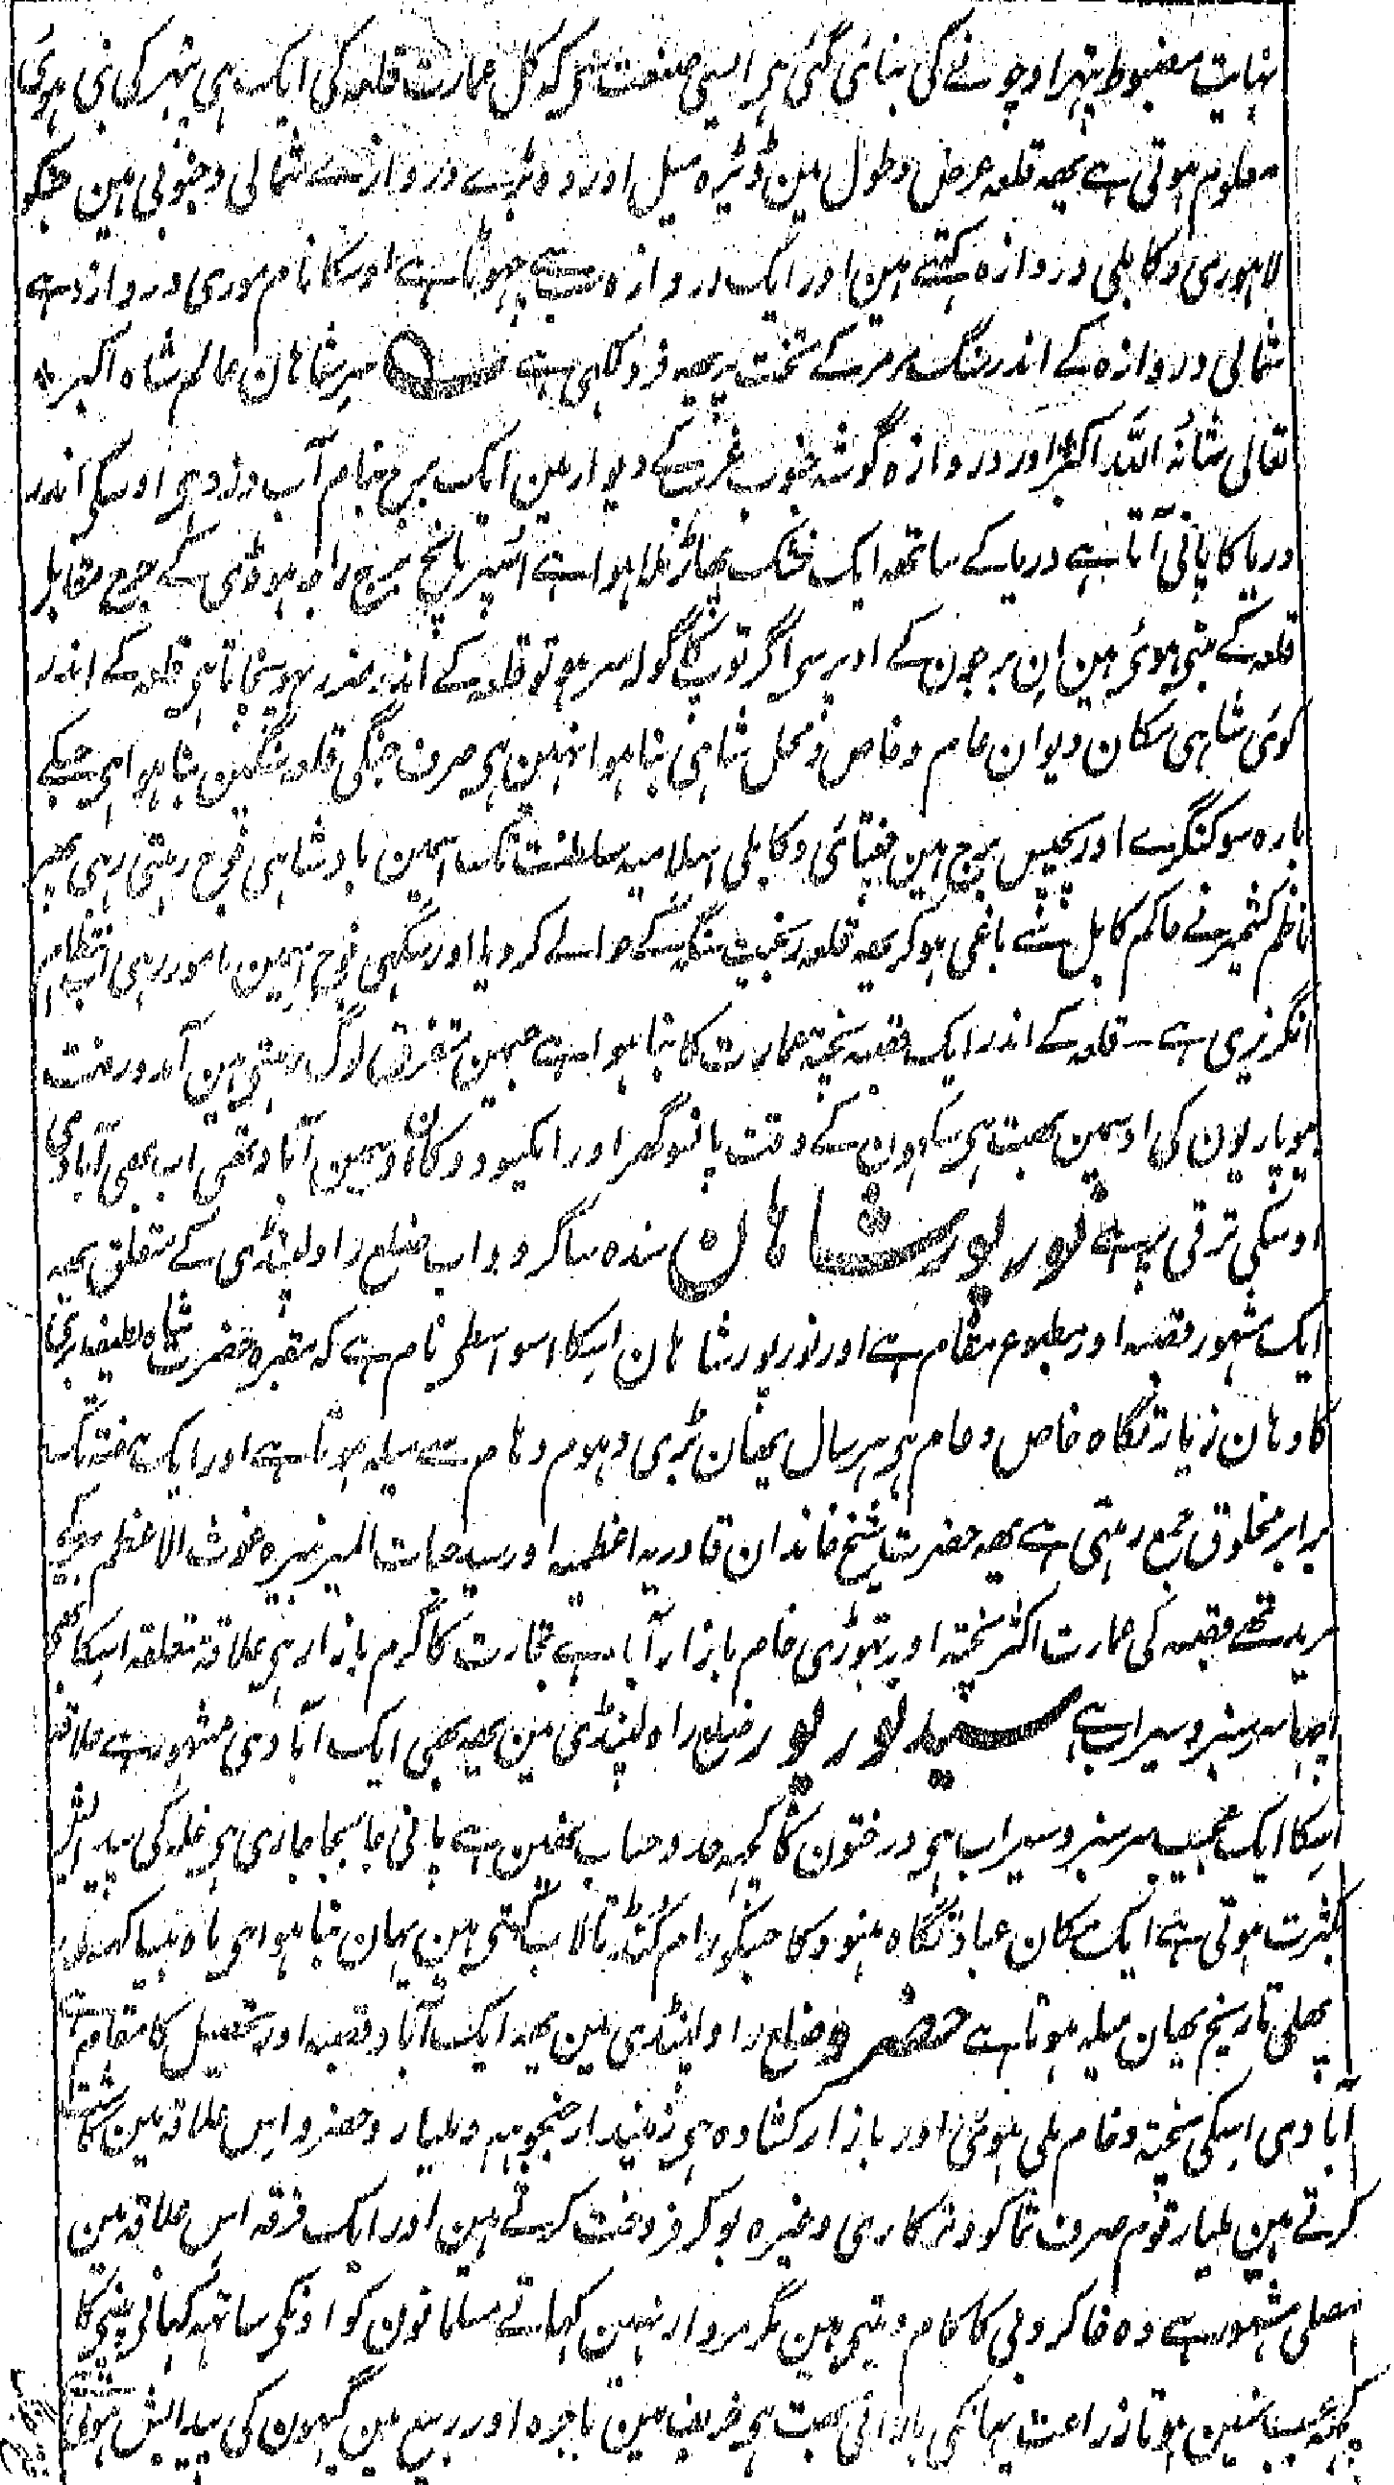 نہایت مضبوط پتھر اور چونے کی بنائی گئی ہی ایسی صنعت سی کہ کل عمارت قلعہ کی ایک ہی پتھر کی بنی ہوئی
معلوم ہوتی ہے یہہ قلعہ عرض و طول مین ڈیڑہ میل اور دو بڑے دروازے شمالی و جنوبی ہین جنکو
لاہوری و کابلی دروازہ کہتے ہین اور ایک دروازہ سب سے چھوٹا ہے اوسکا نام موری دروازہ ہے
شمالی دروازہ کے اندر سنگ مرمر کے تخت پر یہہ فرد لکھی ہے سر شاہان عالم شاہ اکبر ؞
تعالی شانہ اللہ اکبر اور دروازہ گوشہ جنوب غرب کے دیوار مین ایک برج بنام آب دزد ہی اوسکی اندر
دریا کا پانی آتا ہے دریا کے ساتھہ ایک خشک پہاڑ ملا ہوا ہے اسپر پانچ برج راجہ ہوڈی کے مقابل
قلعہ کے بنی ہوئی ہین ان برجون کے اوپر سی اگر توپ کا گولہ سر ہو تو قلعہ کے اندر ضرر پہونچاتا ہی قلعہ کے اندر
کوئی شاہی مکان دیوان عام و خاص و محل شاہی بنا ہوا نہین ہی صرف جنگی قلعہ سنگین بنا ہوا ہی جسکے
بارہ سو کنگرے اور پچیس برج ہین چغتائی و کابلی اسلامیہ سلطنت تک اسمین بادشاہی فوج رہتی رہی پھر
ناظم کشمیر نے حاکم کابل سے باغی ہو کر یہہ قلعہ رنجیت سنگہ کے حوالے کر دیا اور سکھی فوج اسمین مامور رہی اب انتظام
انگریزی ہے ـ قلعہ کے اندر ایک قصبہ پختہ عمارت کا بنا ہوا ہے جسمین متفرق لوگ رہتی ہین آمد و رفت
بیوپاریون کی اوسمین بہت ہی سکہون کے وقت پانسو گھر اور ایکسو دوکان اوسمین آباد تھی اب بھی آبادی
اوسکی ترقی پر ہے نور پور شاہان سندہ ساگر دوآب ضلع راولپنڈی کے متعلق یہہ
ایک مشہور قصبہ اور مطبوع مقام ہے اور نور پور شاہان اسکا اسواسطی نام ہے کہ مقبرہ حضرت شاہ لطیف بری
کا وہان زیارتگاہ خاص و عام ہی ہر سال یہان بڑی دہوم دہام سے میلہ ہوتا ہے اور ایک ہفتہ تک
برابر مخلوق جمع رہتی ہے یہہ حضرت شیخ خاندان قادریہ اعظمیہ اور سید حیات المیر نبیرہ غوث الاعظم کے
مرید تھے قصبہ کی عمارت اکثر پختہ اور تہوڑی خام بازار آباد ہے تجارت کا گرم بازار ہی علاقہ متعلقہ اسکا بھی
اچھا سرسبز و سیراب ہے سید پور ضلع راولپنڈی مین یہہ بھی ایک آبادی مشہور ہے علاقہ
اسکا ایک عجیب سرسبز و سیراب ہی درختون کا کچہہ حد و حساب نہین ہے پانی جابجا جاری ہی غلہ کی پیدائش
بکثرت ہوتی ہے ایک مکان عبادتگاہ ہنود کا جسکو رام کنڈ تالاب کہتی ہین یہان بنا ہوا ہی ماہ بیساکہہ کی
پہلی تاریخ یہان میلہ ہوتا ہے حضرو ضلع راولپنڈی مین یہہ ایک آباد قصبہ اور تحصیل کا مقام ہے
آبادی اسکی پختہ و خام ملی ہوئی اور بازار کشادہ ہی زمیندار جنجوہہ و ملیار و حضرو اس علاقہ مین کاشت
کرتے ہین ملیار قوم صرف تماکو و ترکاری وغیرہ بو کر فروخت کرتے ہین اور ایک فرقہ اس علاقہ مین
مصلی مشہور ہے وہ خاکروبی کا کام دیتی ہین مگر مردار نہین کہاتے مسلمانون کو اونکی ساتھہ کھانی پینی کا
کچہہ عیب نہین ہوتا زراعت یہانکی بارانی بہت ہی خریف مین باجرہ اور ربیع مین گیہون کی پیدایش ہوتی